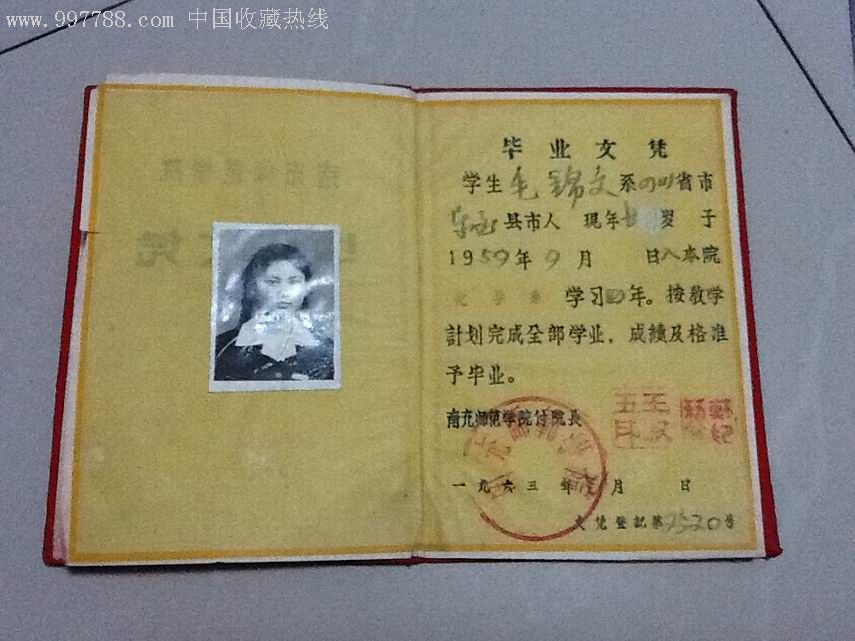 www.997788.com 中国收藏热线
毕业文凭
学生毛锦文系四川省市
县市人 现年 岁 于
1959年9月 日入本院
学习四年。按教学
計划完成全部学业,成績及格准
予毕业。
南充师范学院付院長
一九六三 年 月 日
文凭登記第2520号